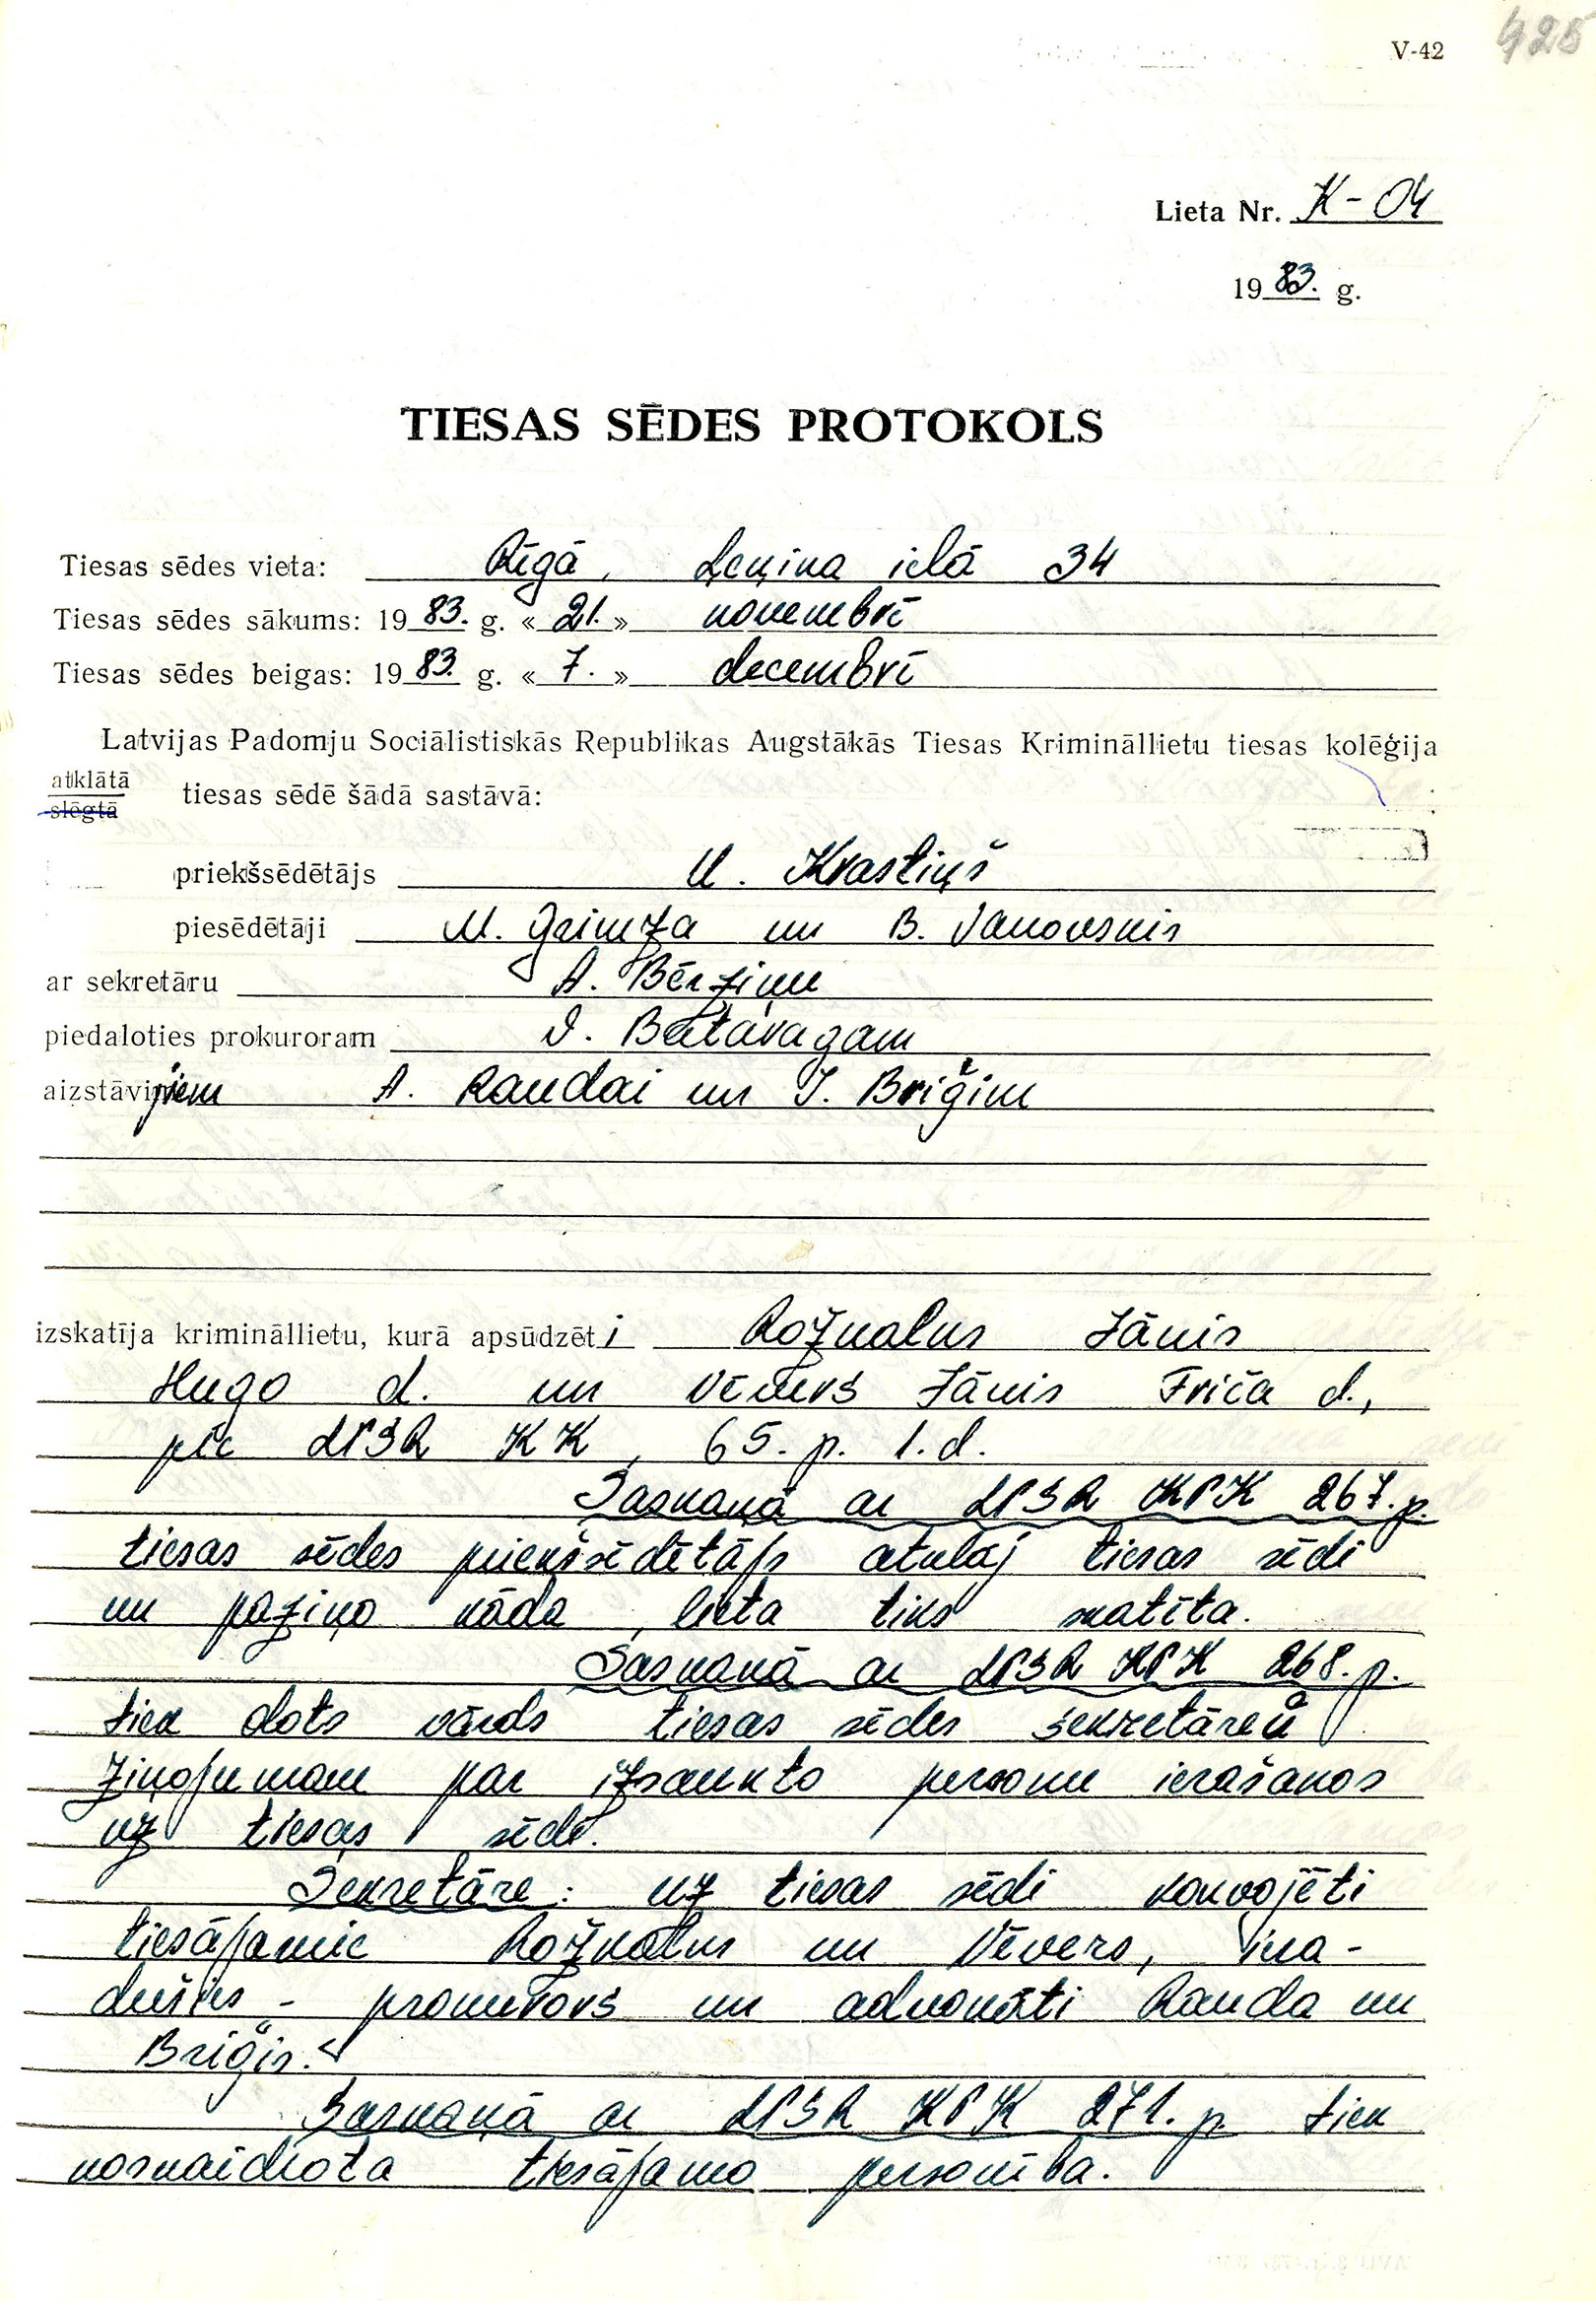 V-42 425
Lieta Nr. K-04
1983. g.
TIESAS SĒDES PROTOKOLS
Tiesas sēdes vieta: Rīgā, Ļeņina ielā 34
Tiesas sēdes sākums: 1983. g. «21.» novembrī
Tiesas sēdes beigas: 1983. g. «7.» decembrī
Latvijas Padomju Sociālistiskās Republikas Augstākās Tiesas Krimināllietu tiesas kolēģija
atklātā
slēgtā
tiesas sēdē šādā sastāvā:
priekšsēdētājs U. Krastiņš
piesēdētāji M. Grimza un B. Janovskis
ar sekretāru A. Bērziņu
piedaloties prokuroram J. Batavagam
aizstāvjiem A. Raudai un J. Briģim
izskatīja krimināllietu, kurā apsūdzēti Rožkalns Jānis
Hugo d. un Vēvers Jānis Friča d.,
pēc LPSR KK 65. p. 1. d.
Saskaņā ar LPSR KPK 267. p.
tiesas sēdes priekšsēdētājs atklāj tiesas sēdi
un paziņo kāda lieta tiks skatīta.
Saskaņā ar LPSR KPK 268. p.
tiek dots vārds tiesas sēdes sekretārei
ziņojumam par izsaukto personu ierašanos
uz tiesas sēdi.
Sekretāre: uz tiesas sēdi konvojēti
tiesājamie Rožkalns un Vēvers, iera-
dušies - prokurors un advokāti Rauda un
Briģis.
Saskaņā ar LPSR KPK 271. p. tiek
noskaidrota tiesājamo personība.